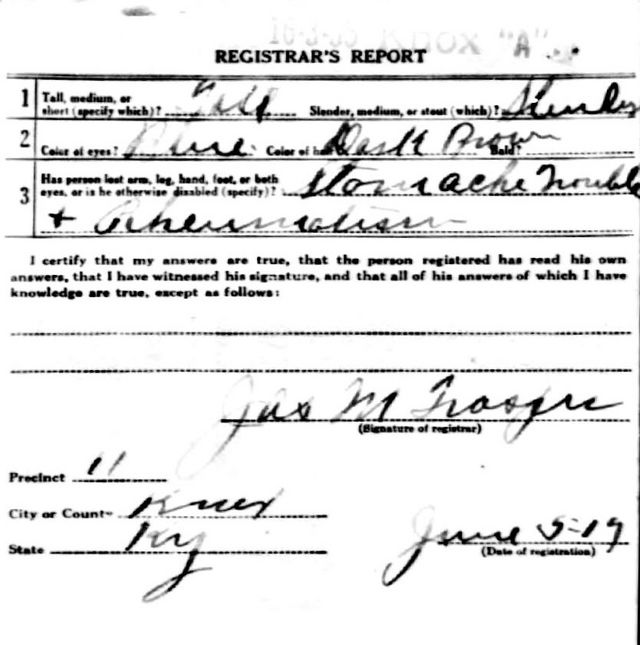 16-3-35 Knox "A"
REGISTRAR'S REPORT
1 Tall, medium, or short (specify which)? Tall Slender, medium, or stout (which)? Slender
2 Color of eyes? Blue Color of hair Dark Brown Bald?
3 Has person lost arm, leg, hand, foot, or both eyes, or is he otherwise disabled (specify)? Stomache Trouble
+ Rheumatism
I certify that my answers are true, that the person registered has read his own
answers, that I have witnessed his signature, and that all of his answers of which I have
knowledge are true, except as follows:
Jas M
(Signature of registrar)
Precinct 11
City or County Knox
State Ky
June 5-17
(Date of registration)